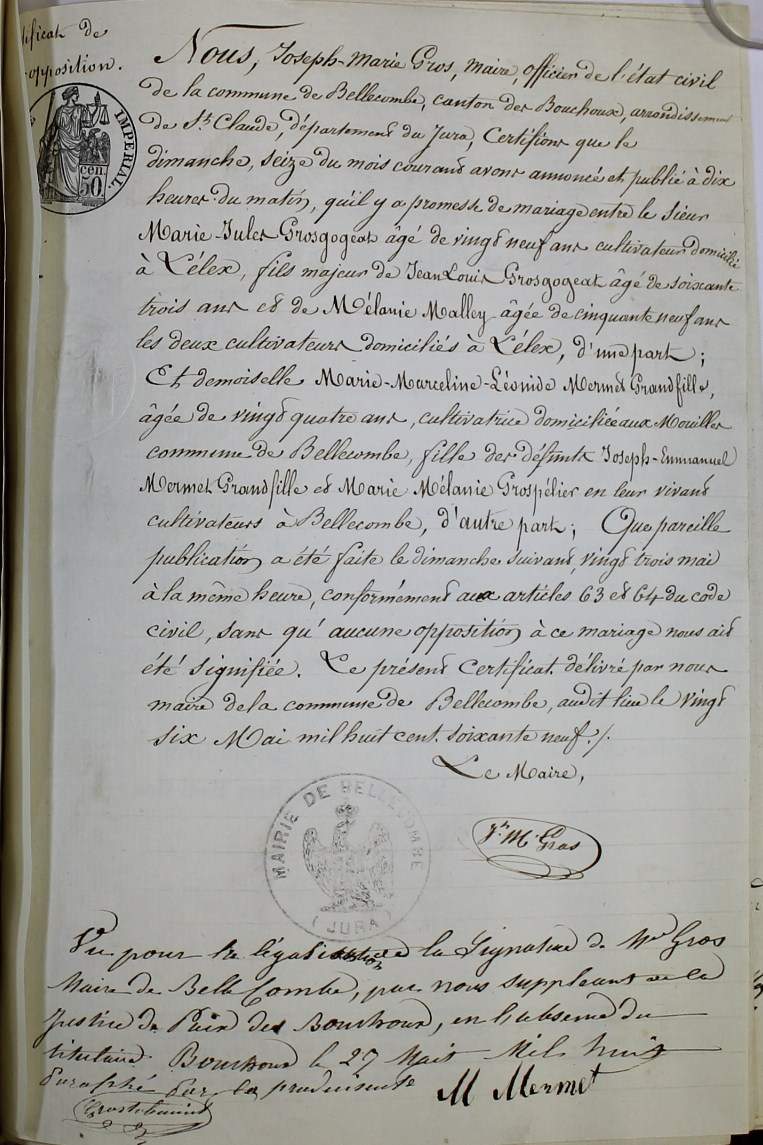 tificat de
opposition.
IMPERIAL.
cen.
50
Nous, Joseph-Marie Gros, maire, officier de l'état civil
de la commune de Bellecombe, canton des Bouchoux, arrondissement
de St. Claude, département du Jura, Certifions que le
dimanche, seize du mois courant avons annoncé et publié à dix
heures du matin, qu'il y a promesse de mariage entre le sieur
Marie-Jules Grosgogeat âgé de vingt neuf ans cultivateur domicilié
à Lélex, fils majeur de Jean Louis Grosgogeat âgé de soixante
trois ans et de Mélanie Malley âgée de cinquante neuf ans
les deux cultivateurs domiciliés à Lélex, d'une part;
Et demoiselle Marie-Marceline-Léonide Mermet Grandfille,
âgée de vingt quatre ans, cultivatrice domiciliée aux Mouilles
commune de Bellecombe, fille des défunts Joseph-Emmanuel
Mermet Grandfille et Marie Mélanie Grospélier en leur vivant
cultivateurs à Bellecombe, d'autre part; Que pareille
publication a été faite le dimanche suivant, vingt trois mai
à la même heure, conformément aux articles 63 et 64 du code
civil, sans qu'aucune opposition à ce mariage nous ait
été signifiée. Le présent certificat délivré par nous
maire de la commune de Bellecombe, audit lieu le vingt
six Mai mil huit cent soixante neuf./.
Le Maire,
MAIRIE DE BELLECOMBE
(JURA)
Jh. M. Gros
Vu pour la légalisation de la Signature de Mr Gros
Maire de Belle Combe, par nous suppleant de la
Justice de Paix des Bouchoux, en l'absence du
titulaire. Bouchoux le 27 Mait Mil huit
Paraphé par la
M Mermet